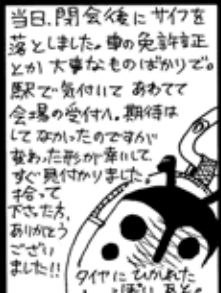 当日、閉会後にサイフを
落としました。車の免許証
とか大事なものばかりで。
駅で気付いてあわてて
会場の受付へ。期待は
してなかったのですが
変わった形が幸いして、
すぐ見付かりました。
拾って
下さった方、
ありがとう
ござい
ました!!
タイヤにひかれた